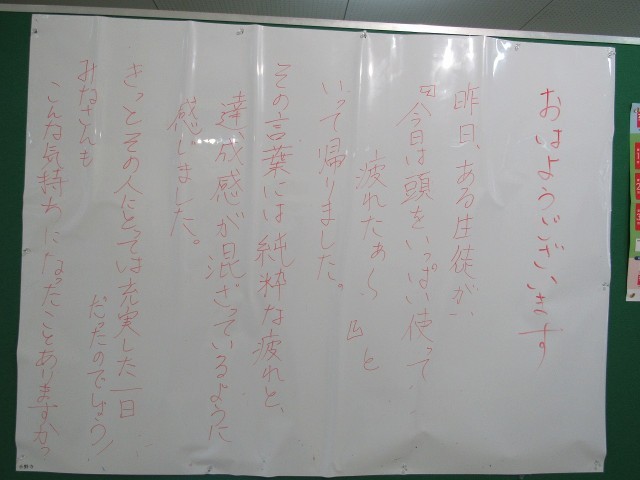 おはようございます
昨日、ある生徒が、
『今日は頭をいっぱい使って…
疲れたぁ～』と
いって帰りました。
その言葉には純粋な疲れと、
達成感が混ざっているように
感じました。
きっとその人にとっては充実した一日
だったのでしょう！
みなさんも
こんな気持ちになったことありますか？